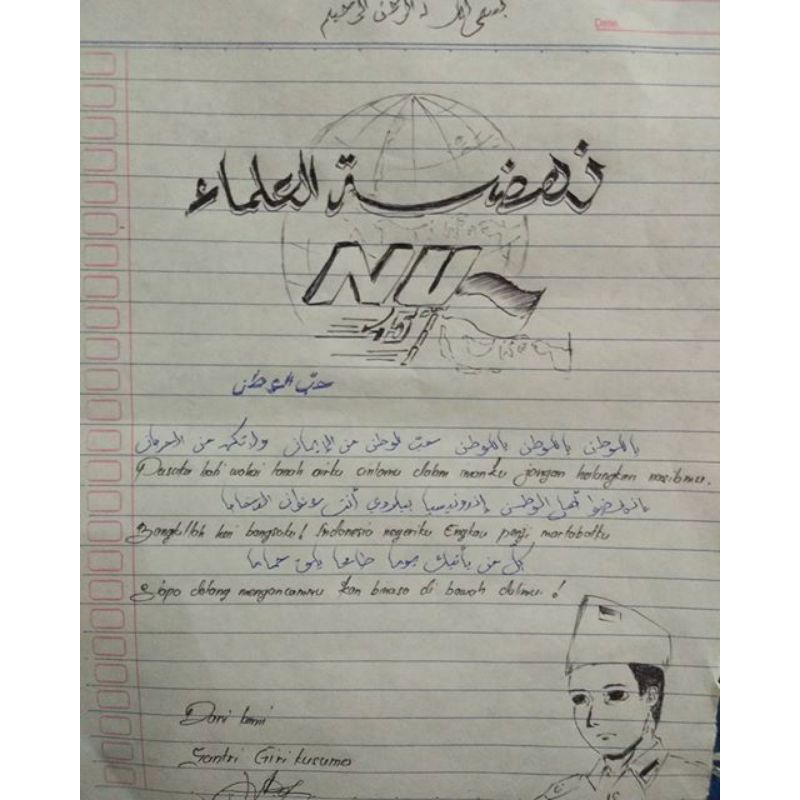 بسم الله الرحمن الرحيم
Date
نهضة العلماء
NU
حب الوطن
ياللوطن ياللوطن ياللوطن حب الوطن من الإيمان ولا تكن من الحرمان
Pusaka hati wahai tanah airku cintamu dalam imanku jangan halangkan nasibmu.
انهضوا أهل الوطن إندونيسيا بيلادي أنت عنوان الفخاما
Bangkitlah hai bangsaku! Indonesia negeriku Engkau panji martabatku
كل من يأتيك يوما طامعا يلق حماما
Siapa datang mengancammu kan binasa di bawah dulimu.!
Dari kami
Santri Giri kusumo